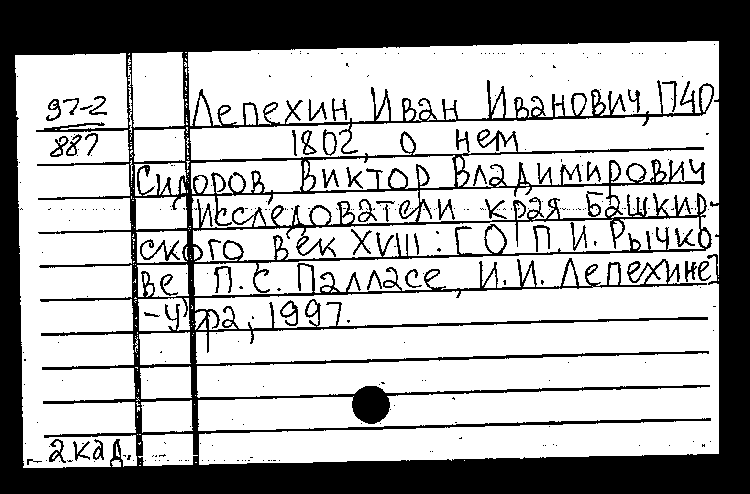 97-2
887
Лепехин, Иван Иванович, 1740-
1802, о нем
Сидоров, Виктор Владимирович
Исследователи края Башкир-
ского век XVIII: [О П.И. Рычко-
ве, П.С. Палласе, И.И. Лепехине]
-Уфа, 1997.
2кад.